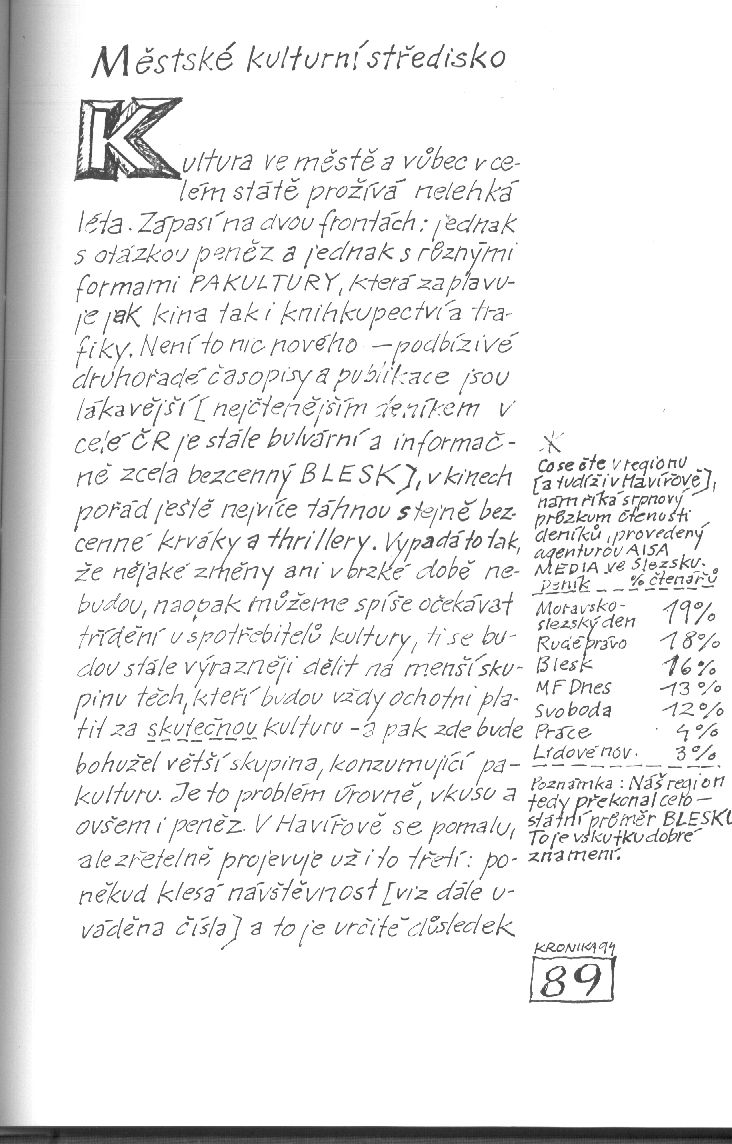 Městské kulturní středisko
Kultura ve městě a vůbec v ce-
lém státě prožívá nelehká
léta. Zápasí na dvou frontách: jednak
s otázkou peněz a jednak s různými
formami PAKULTURY, která zaplavu-
je jak kina tak i knihkupectví a tra-
fiky. Není to nic nového — podbízivé
druhořadé časopisy a publikace jsou
lákavější [nejčtenějším deníkem v
celé ČR je stále bulvární a informač-
ně zcela bezcenný BLESK], v kinech
pořád ještě nejvíce táhnou stejně bez-
cenné krváky a thrillery. Vypadá to tak,
že nějaké změny ani v brzké době ne-
budou, naopak můžeme spíše očekávat
třídění u spotřebitelů kultury, ti se bu-
dou stále výrazněji dělit na menší sku-
pinu těch, kteří budou vždy ochotni pla-
tit za skutečnou kulturu - a pak zde bude
bohužel větší skupina, konzumující pa-
kulturu. Je to problém úrovně, vkusu a
ovšem i peněz. V Havířově se pomalu,
ale zřetelně projevuje už i to třetí: po-
někud klesá návštěvnost [viz dále u-
váděna čísla] a to je určitě důsledek
Co se čte v regionu
[a tudíž i v Havířově],
nám říká srpnový
průzkum čtenosti
deníků, provedený
agenturou AISA
MEDIA ve Slezsku.
Deník % čtenářů
Moravsko-
slezský den 19%
Rudé právo 18%
Blesk 16%
MF Dnes 13%
Svoboda 12%
Práce 4%
Lidové nov. 3%
Poznámka: Náš region
tedy překonal celo-
státní průměr BLESKU
To je vskutku dobré
znamení.
KRONIKA 94
89